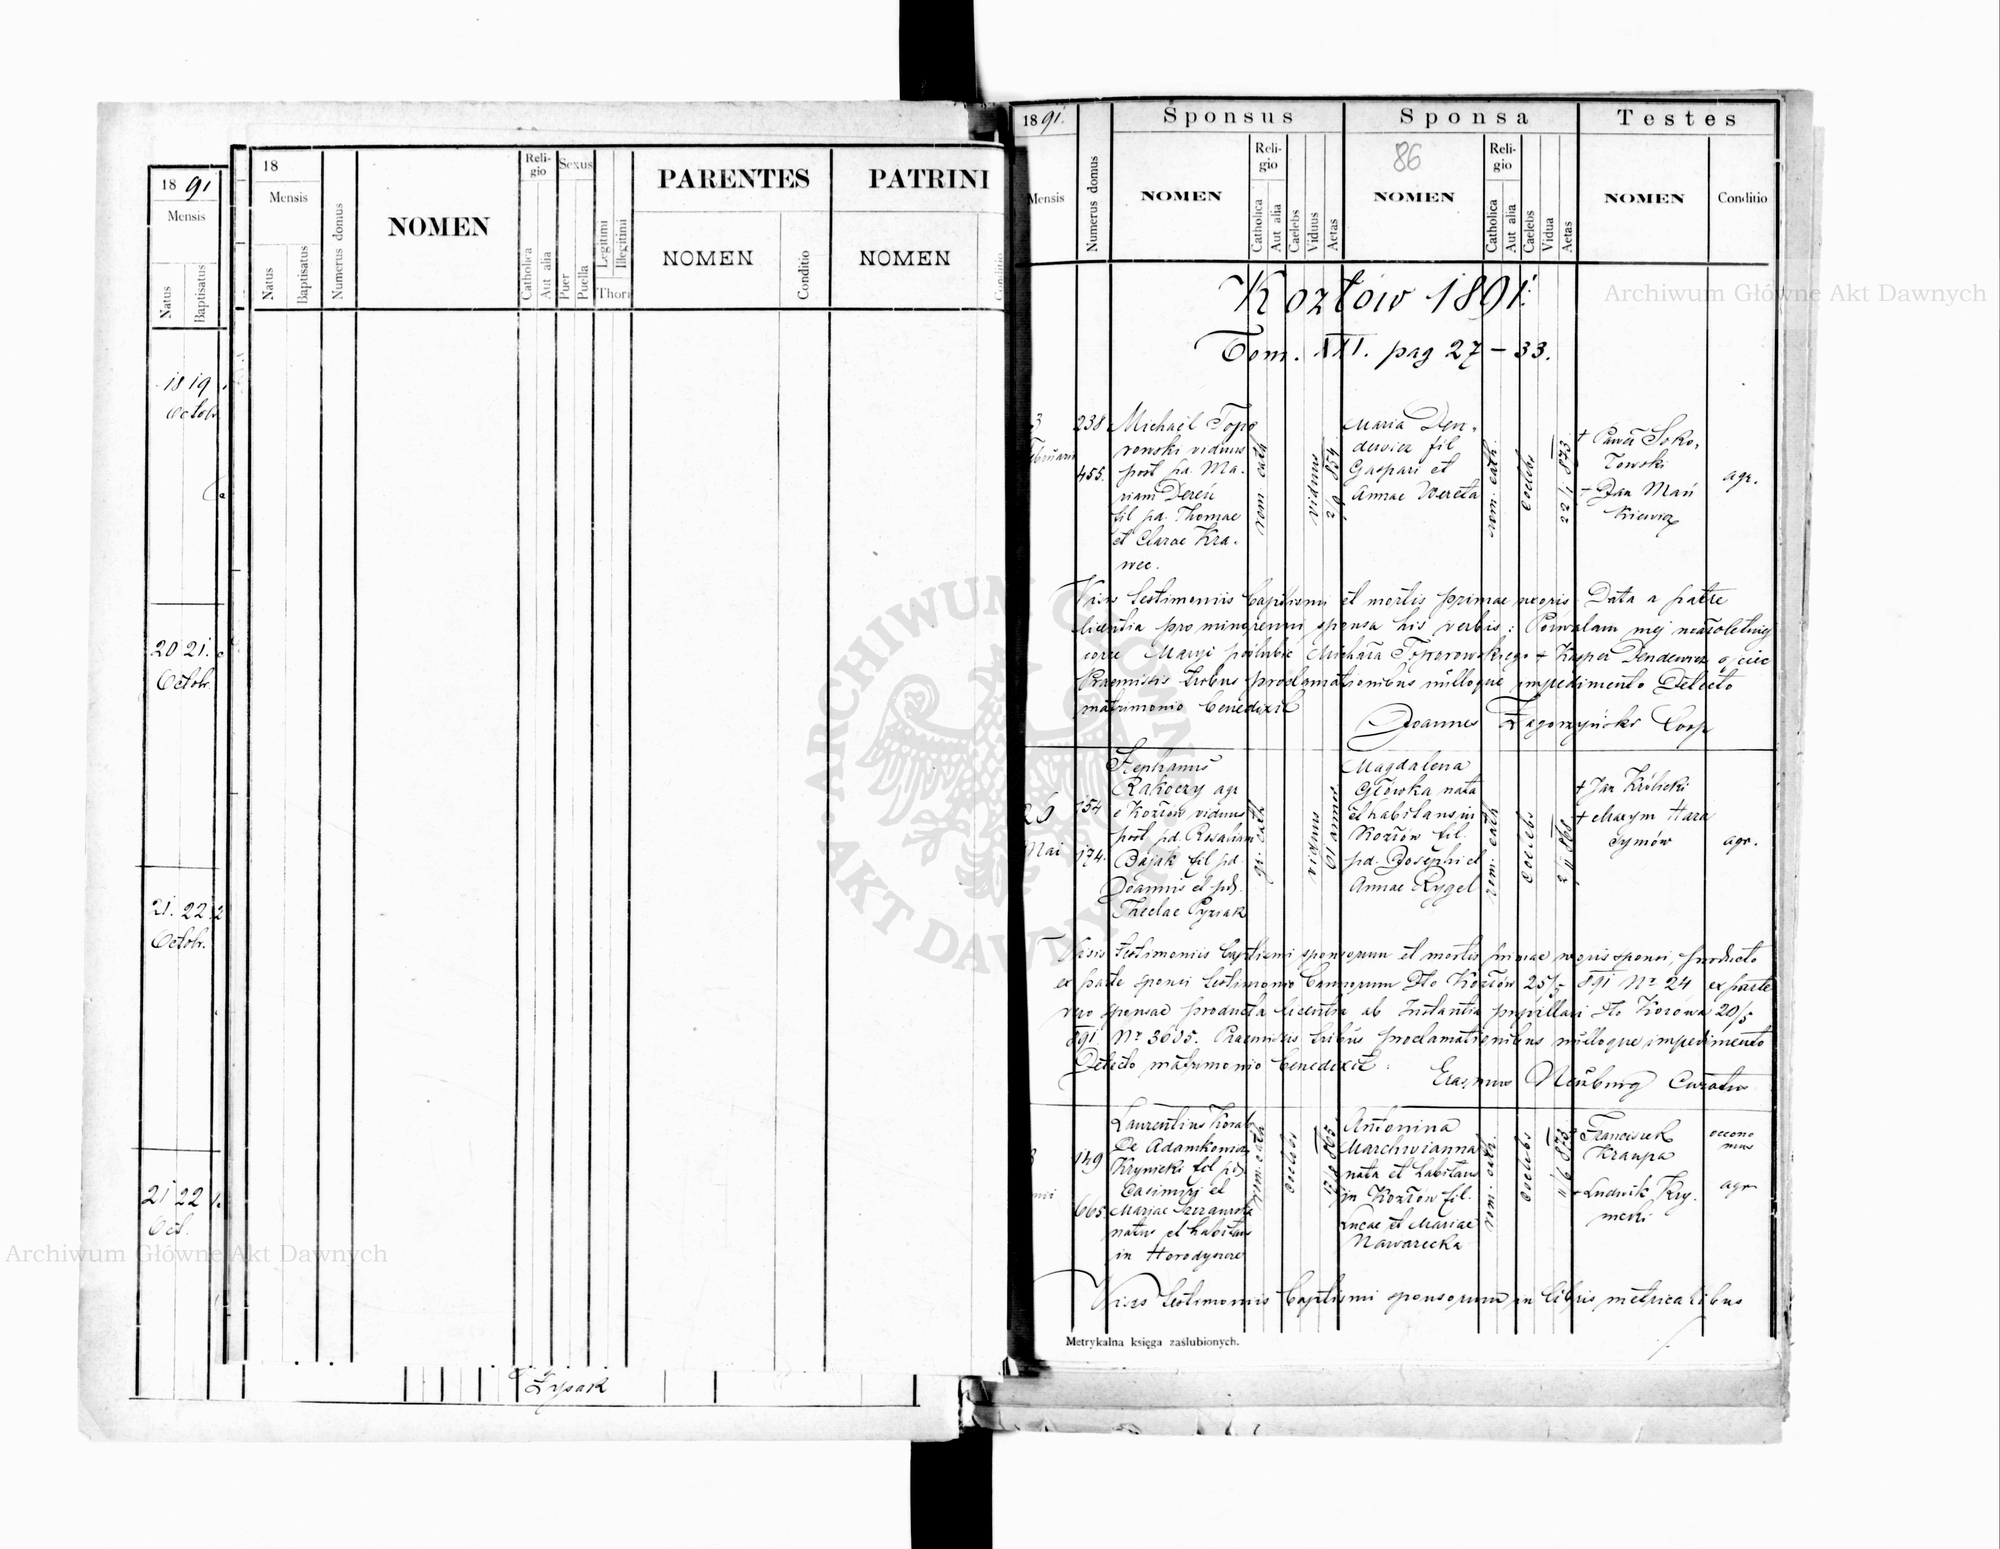 18 91
Mensis
Natus
Baptisatus
18 19
Octobr.
20 21.
Octobr.
21. 22.
Octobr.
21 22
Oct.
18
Mensis
Natus
Baptisatus
Numerus domus
NOMEN
Reli-
gio
Catholica
Aut alia
Sexus
Puer
Puella
Legitimi
Illegitimi
Thori
PARENTES
NOMEN
Conditio
PATRINI
NOMEN
Conditio
Łysak
1891.
Mensis
Numerus domus
Sponsus
NOMEN
Reli-
gio
Catholica
Aut alia
Caelebs
Viduus
Aetas
Sponsa
86
NOMEN
Reli-
gio
Catholica
Aut alia
Caelebs
Vidua
Aetas
Testes
NOMEN
Conditio
Kozłów 1891.
Tom. XXI. pag 27 – 33.
3
238
455.
Michael Topo
rowski viduus
post pd. Ma-
riam Dereń
fil pd. Thomae
et Clarae Kra-
wec.
rom. cath
viduus
Maria Den-
dewicz fil
Gaspari et
Annae Wereta
rom. cath.
coelebs
+ Paweł Soko-
łowski
+ Jan Mań
kiewicz
agr.
Visis testimoniis baptismi et mortis primae uxoris. Data a patre
licentia pro minorenni sponsa his verbis: Pozwalam mej małoletniej
córce Maryi poślubić Michała Toporowskiego + Kasper Dendewicz ojciec
Praemissis tribus proclamationibus nulloque impedimento detecto
matrimonio benedixit
Joannes Zagorzyński Coop
26
Mai
154
174.
Stephanus
Rakoczy agr
e Kozłów viduus
post pd. Rosaliam
Bajak fil pd
Joannis et pd.
Theclae Pyziak
gr. cath
viduus
61 annos
Magdalena
Główka nata
et habitans in
Kozłów fil.
pd. Josephi et
Annae Rygel
rom. cath
coelebs
+ Jan Królicki
+ Maxym Hara
symów
agr.
Visis testimoniis baptismi sponsorum et mortis primae uxoris sponsi, producto
ex parte sponsi testimonio bannorum dto Kozłów 25/5 891 No 24 ex parte
vero sponsae producta licentia ab Instantia pupillari dto Kozowa 20/5
891. No 3605. Praemissis tribus proclamationibus nulloque impedimento
detecto matrimonio benedixit.
Erasmus Neuburg Curatus
149
665.
Laurentius Korab
de Adamkowice
Krynicki fil pd
Casimiri et
Mariae
natus et habitans
in Horodyszcze
rom. cath
coelebs
Antonina
Marchwianna
nata et habitans
in Kozłów fil.
Lucae et Mariae
Nawarecka
rom. cath.
coelebs
Franciszek
Kraupa
+ Ludwik Kry-
nicki
oecono
mus
agr
Visis testimoniis baptismi sponsorum in libris metricalibus
Metrykalna księga zaślubionych.
Archiwum Główne Akt Dawnych
Archiwum Główne Akt Dawnych
ARCHIWUM GŁÓWNE
AKT DAWNYCH